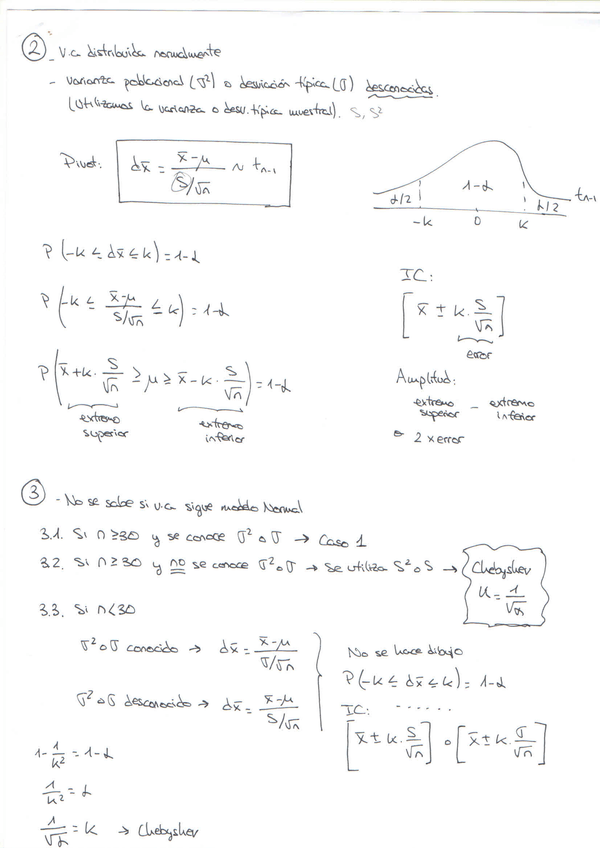 ② - V.a distribuida normalmente
- varianza poblacional (σ²) o desviación típica (σ) desconocidas.
(Utilizamos la varianza o desv. típica muestral). S, S²
Pivot: dx̄ = (x̄-μ)/(S/√n) ~ tn-1
α/2 1-α α/2 tn-1
-k 0 k
P(-k ≤ dx̄ ≤ k) = 1-α
P(-k ≤ (x̄-μ)/(S/√n) ≤ k) = 1-α
P(x̄+k·S/√n ≥ μ ≥ x̄-k·S/√n) = 1-α
extremo superior
extremo inferior
IC:
[x̄ ± k·S/√n]
error
Amplitud:
extremo superior - extremo inferior
o 2 x error
③ - No se sabe si v.a sigue modelo Normal
3.1. Si n≥30 y se conoce σ² o σ → Caso 1
3.2. Si n≥30 y no se conoce σ² o σ → Se utiliza S² o S →
Chebyshev
k = 1/√α
3.3. Si n<30
σ² o σ conocido → dx̄ = (x̄-μ)/(σ/√n)
σ² o σ desconocido → dx̄ = (x̄-μ)/(S/√n)
No se hace dibujo
P(-k ≤ dx̄ ≤ k) = 1-α
IC: ......
[x̄ ± k·S/√n] o [x̄ ± k·σ/√n]
1-1/k² = 1-α
1/k² = α
1/√α = k → Chebyshev